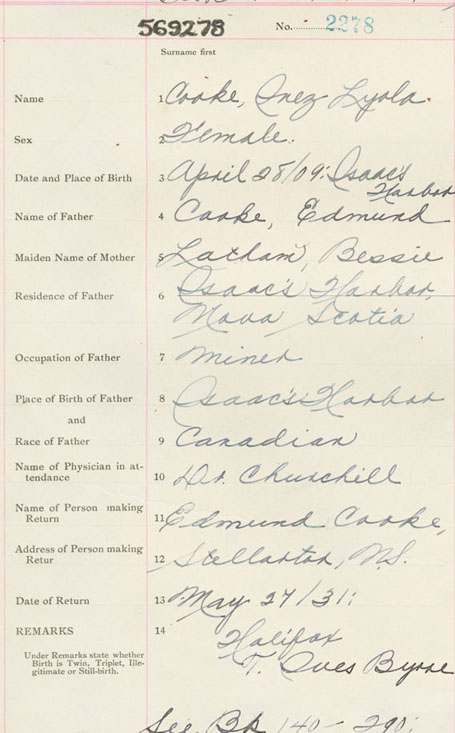 569278 No. 2278
Surname first
Name 1 Cooke, Inez Lyola.
Sex 2 Female.
Date and Place of Birth 3 April 28/09: Isaac's
Harbor
Name of Father 4 Cooke, Edmund
Maiden Name of Mother 5 Latham, Bessie
Residence of Father 6 Isaac's Harbor,
Nova Scotia
Occupation of Father 7 Miner
Place of Birth of Father 8 Isaac's Harbor
and
Race of Father 9 Canadian
Name of Physician in at-
tendance 10 Dr. Churchill
Name of Person making
Return 11 Edmund Cooke,
Address of Person making
Retur 12 Stellarton, N.S.
Date of Return 13 May 27/31:
REMARKS 14 Halifax
Under Remarks state whether
Birth is Twin, Triplet, Ille-
gitimate or Still-birth.
T. Ives Byrne
See Bk 140 - 290: